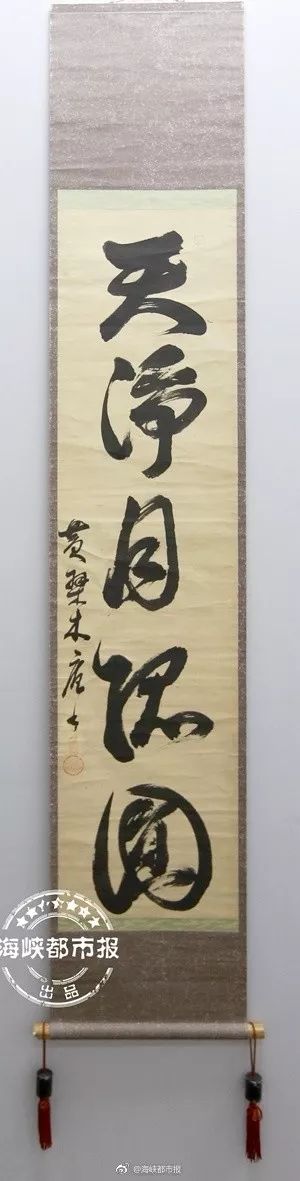 天淨月圓
黄檗木庵書
海峡都市报
出品
@海峡都市报